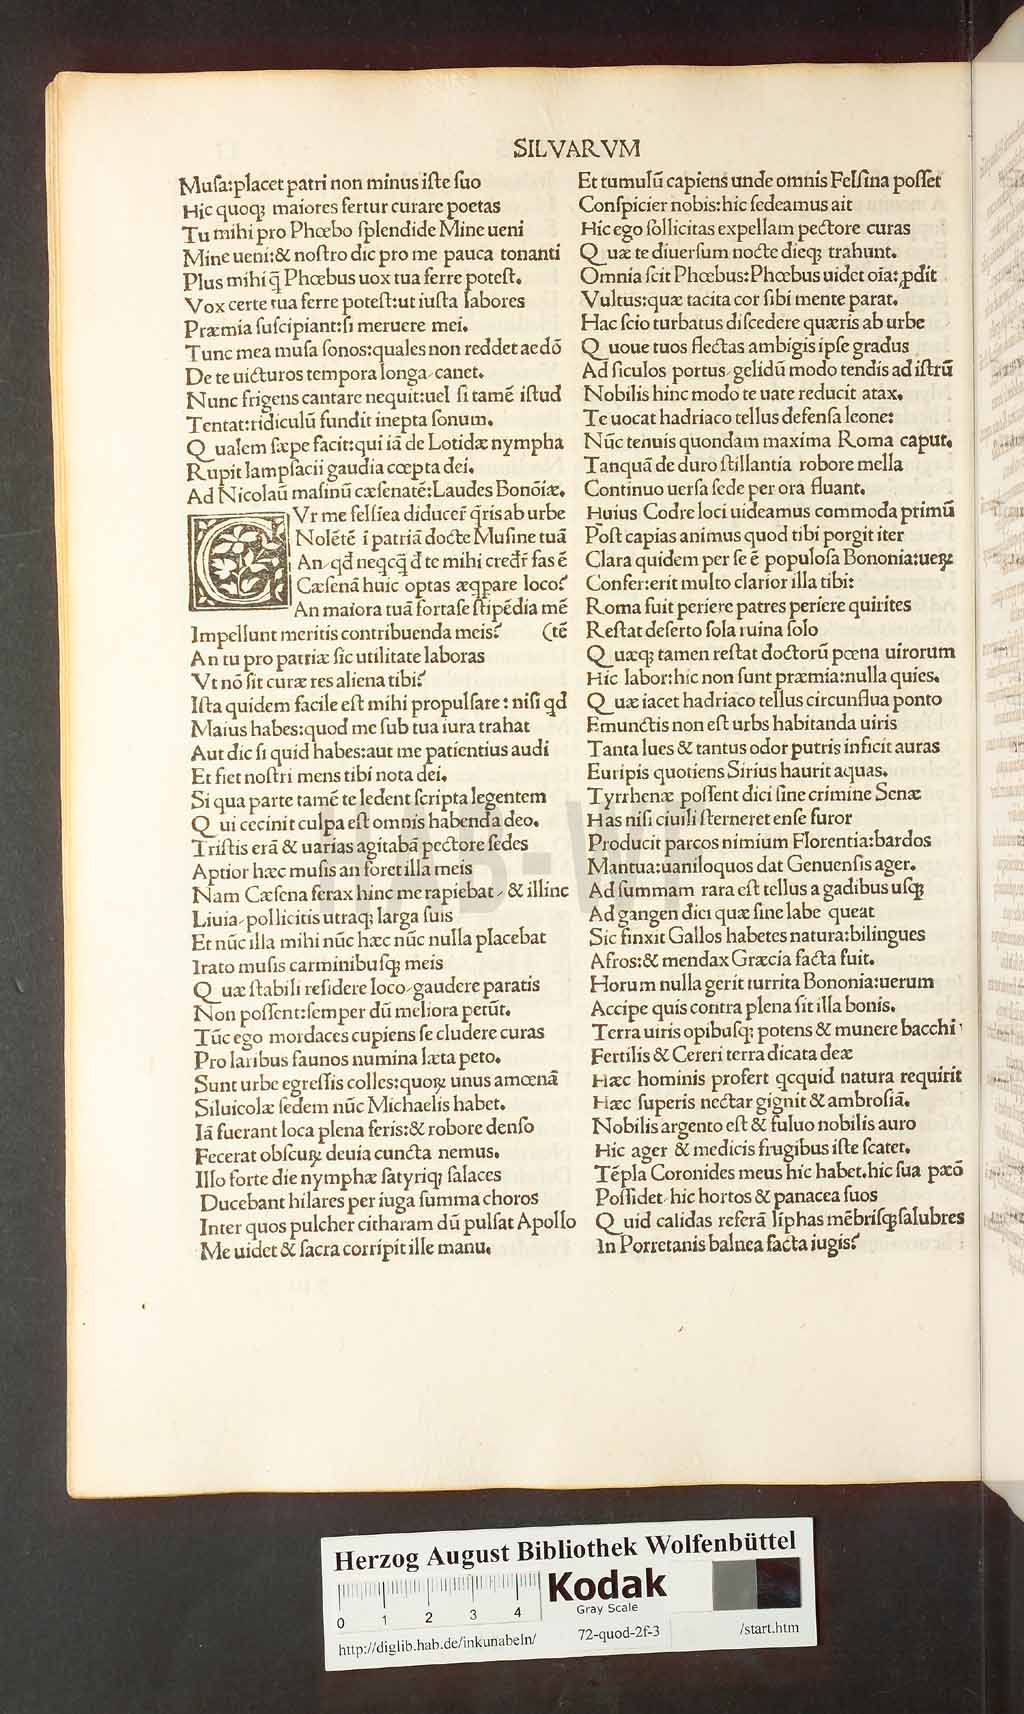 SILVARVM
Muſa:placet patri non minus iſte ſuo
Hic quoqꝫ maiores fertur curare poetas
Tu mihi pro Phœbo ſplendide Mine ueni
Mine ueni:& noſtro dic pro me pauca tonanti
Plus mihi q̃ Phœbus uox tua ferre poteſt.
Vox certe tua ferre poteſt:ut iuſta labores
Præmia ſuſcipiant:ſi meruere mei.
Tunc mea muſa ſonos:quales non reddet aedō
De te uicturos tempora longa canet.
Nunc frigens cantare nequit:uel ſi tamē iſtud
Tentat:ridiculū fundit inepta ſonum.
Qualem ſæpe facit:qui iā de Lotidæ nympha
Rupit lampſacii gaudia cœpta dei.
Ad Nicolaū maſinū cæſenatē:Laudes Bonōiæ.
CVr me felſiea diducer̃ q̃ris ab urbe
Nolētē ī patriā docte Muſine tuā
An qd̄ neqcq̄ d te mihi credr̃ fas ē
Cæſenā huic optas æqpare loco?
An maiora tuā fortaſe ſtipēdia mē
Impellunt meritis contribuenda meis? (tē
An tu pro patriæ ſic utilitate laboras
Vt nō ſit curæ res aliena tibi?
Iſta quidem facile eſt mihi propulſare: niſi qd
Maius habes:quod me ſub tua iura trahat
Aut dic ſi quid habes:aut me patientius audi
Et fiet noſtri mens tibi nota dei.
Si qua parte tamē te ledent ſcripta legentem
Qui cecinit culpa eſt omnis habenda deo.
Triſtis erā & uarias agitabā pectore ſedes
Aptior hæc muſis an foret illa meis
Nam Cæſena ferax hinc me rapiebat & illinc
Liuia pollicitis utraqꝫ larga ſuis
Et nūc illa mihi nūc hæc nūc nulla placebat
Irato muſis carminibuſqꝫ meis
Quæ ſtabili reſidere loco gaudere paratis
Non poſſent:ſemper dū meliora petūt.
Tūc ego mordaces cupiens ſe cludere curas
Pro laribus faunos numina læta peto.
Sunt urbe egreſſis colles:quoꝝ unus amœnā
Siluicolæ ſedem nūc Michaelis habet.
Iā fuerant loca plena feris:& robore denſo
Fecerat obſcuꝝ deuia cuncta nemus.
Illo forte die nymphæ ſatyriqꝫ ſalaces
Ducebant hilares per iuga ſumma choros
Inter quos pulcher citharam dū pulſat Apollo
Me uidet & ſacra corripit ille manu.
Et tumulū capiens unde omnis Felſina poſſet
Conſpicier nobis:hic ſedeamus ait
Hic ego ſollicitas expellam pectore curas
Quæ te diuerſum nocte dieqꝫ trahunt.
Omnia ſcit Phœbus:Phœbus uidet oīa:ꝓdit
Vultus:quæ tacita cor ſibi mente parat.
Hac ſcio turbatus diſcedere quæris ab urbe
Quoue tuos flectas ambigis ipſe gradus
Ad ſiculos portus gelidū modo tendis ad iſtrū
Nobilis hinc modo te uate reducit atax.
Te uocat hadriaco tellus defenſa leone:
Nūc tenuis quondam maxima Roma caput.
Tanquā de duro ſtillantia robore mella
Continuo uerſa ſede per ora fluant.
Huius Codre loci uideamus commoda primū
Poſt capias animus quod tibi porgit iter
Clara quidem per ſe ē populoſa Bononia:ueꝝ
Confer:erit multo clarior illa tibi:
Roma fuit periere patres periere quirites
Reſtat deſerto ſola ruina ſolo
Quæqꝫ tamen reſtat doctorū pœna uirorum
Hic labor:hic non ſunt præmia:nulla quies.
Quæ iacet hadriaco tellus circunflua ponto
Emunctis non eſt urbs habitanda uiris
Tanta lues & tantus odor putris inficit auras
Euripis quotiens Sirius haurit aquas.
Tyrrhenæ poſſent dici ſine crimine Senæ
Has niſi ciuili ſterneret enſe furor
Producit parcos nimium Florentia:bardos
Mantua:uaniloquos dat Genuenſis ager.
Ad ſummam rara eſt tellus a gadibus uſqꝫ
Ad gangen dici quæ ſine labe queat
Sic finxit Gallos habetes natura:bilingues
Afros:& mendax Græcia facta fuit.
Horum nulla gerit turrita Bononia:uerum
Accipe quis contra plena ſit illa bonis.
Terra uiris opibuſqꝫ potens & munere bacchi
Fertilis & Cereri terra dicata deæ
Hæc hominis profert qcquid natura requirit
Hæc ſuperis nectar gignit & ambroſiā.
Nobilis argento eſt & fuluo nobilis auro
Hic ager & medicis frugibus iſte ſcatet.
Tēpla Coronides meus hic habet.hic ſua pæō
Poſſidet hic hortos & panacea ſuos
Quid calidas referā liphas mēbriſqꝫ ſalubres
In Porretanis balnea facta iugis?
HAB-WF
Herzog August Bibliothek Wolfenbüttel
0 1 2 3 4
Kodak
Gray Scale
http://diglib.hab.de/inkunabeln/ 72-quod-2f-3 /start.htm